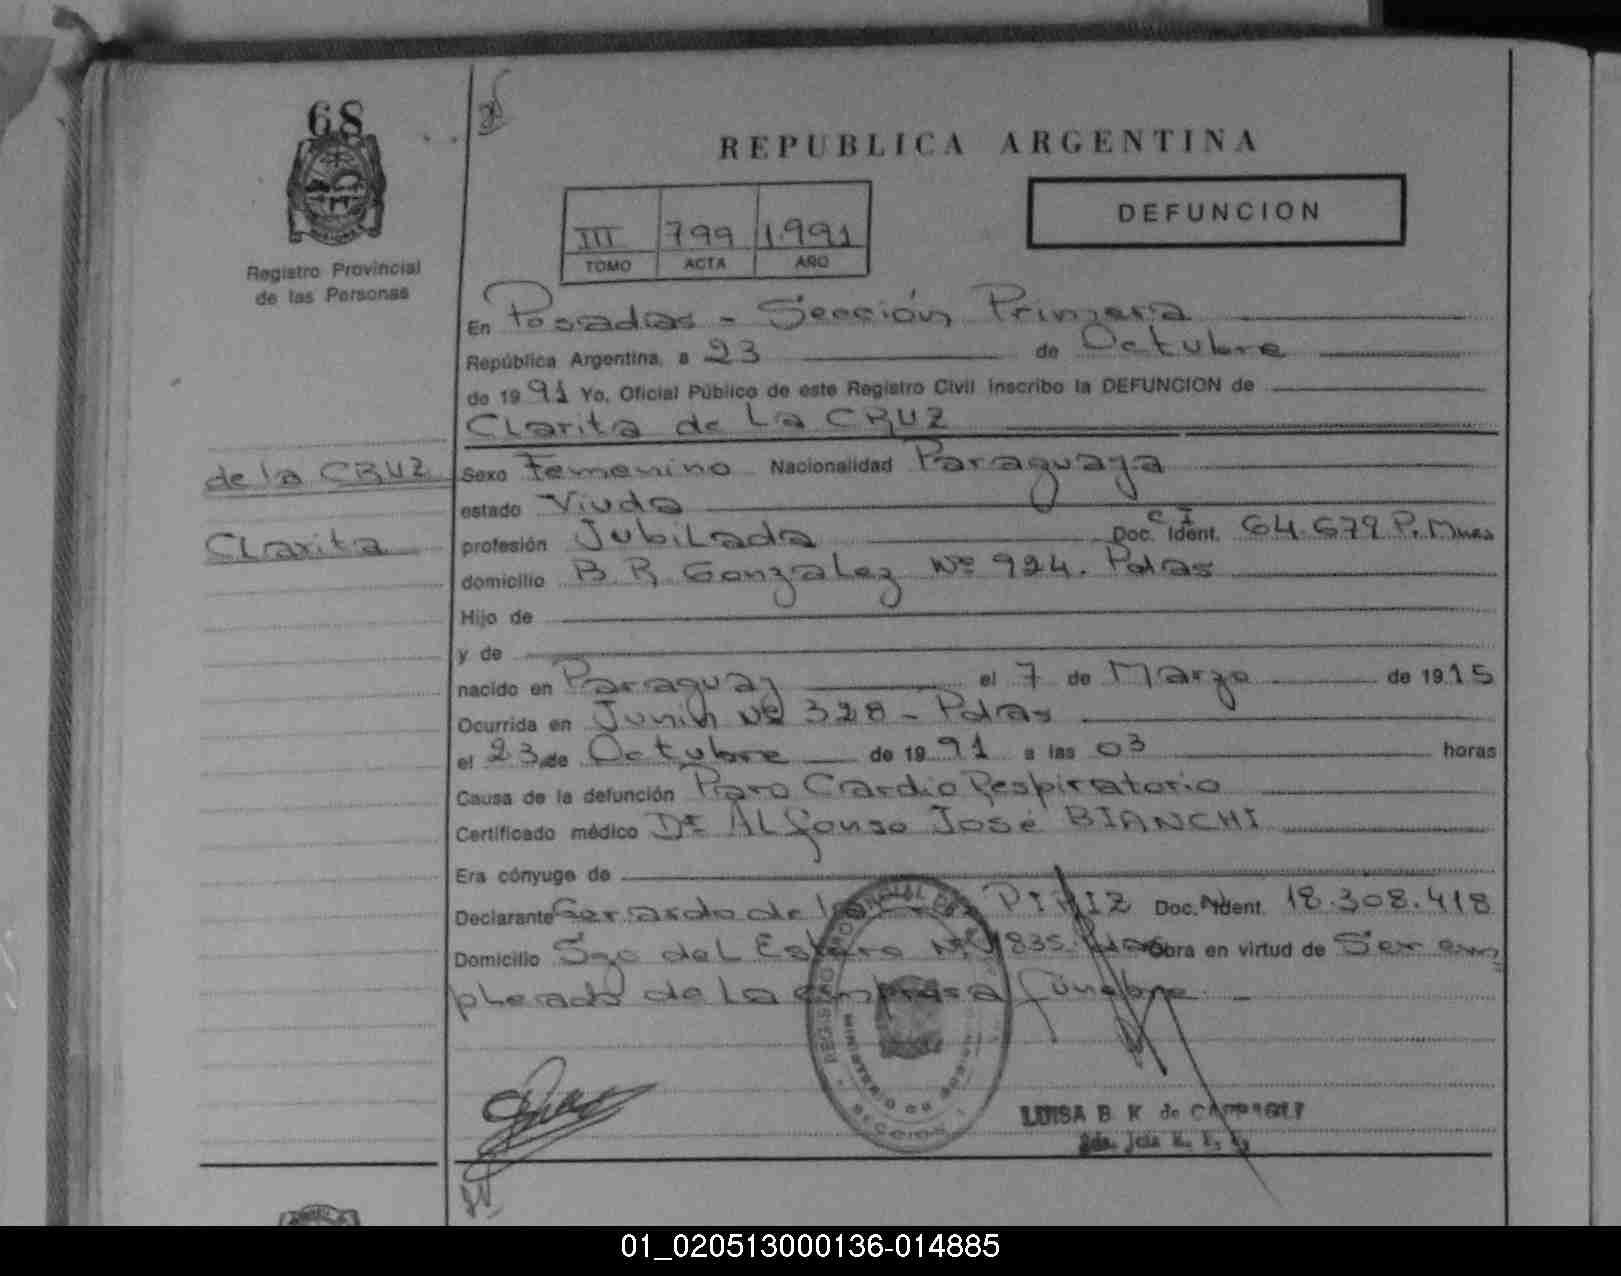 68
REPUBLICA ARGENTINA
DEFUNCION
III 799 1.991
TOMO ACTA AÑO
Registro Provincial
de las Personas
En Posadas - Sección Primera
República Argentina, a 23 de Octubre
de 1991 Yo, Oficial Público de este Registro Civil inscribo la DEFUNCION de
Clarita de La CRUZ
de la CRUZ
Clarita
Sexo Femenino Nacionalidad Paraguaya
estado Viuda
profesión Jubilada Doc. C I Ident. 64.679 P. Mnes
domicilio B. R. Gonzalez Nº 924. Pdas
Hijo de
y de
nacido en Paraguay el 7 de Marzo de 1915
Ocurrida en Junin Nº 328 - Pdas
el 23 de Octubre de 1991 a las 03 horas
Causa de la defunción Paro Cardio Respiratorio
Certificado médico Dr. ALfonso José BIANCHI
Era cónyuge de
Declarante Gerardo de PIRIZ Doc. Ident. 18.308.418
Domicilio Sgo del Estero Nº 1835. Pdas Obra en virtud de Ser em=
pleado de La empresa fúnebre. -
REGISTRO PROVINCIAL DE
MINISTERIO DE GOBIERNO
SECCION 1
LUISA B. K. de
01_020513000136-014885